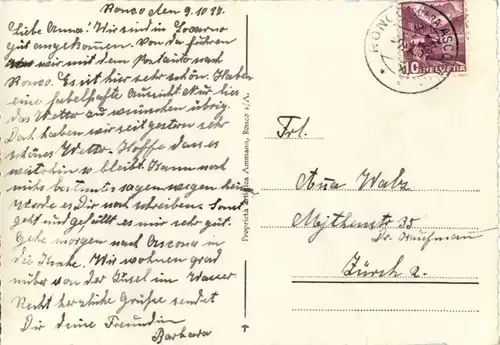 Ronco den 9. 10 37.
Liebe Anna! Wir sind in Locarno
gut angekommen. Von da führen
wir mit dem Postauto nach
Ronco. Es ist hier sehr schön. Haben
eine fabelhafte Aussicht Nur lies
das Wetter zu wünschen übrig.
Doch haben wir seit gestern sehr
schönes Wetter. Hoffe dass es
weiterhin so bleibt. Kann noch
nichts bestimmtes sagen wegen
werde es Dir noch schreiben. Sonst
geht und gefällt es mir sehr gut.
Gehe morgen nach Ascona in
die Kirche. Wir wohnen grad
über von der Insel im Wasser
Recht herzliche Grüsse sendet
Dir deine Freundin
Barbara
Ammann, Ronco s/A.
RONCO
ASC
10 HELVETIA
Frl.
Anna Walz
Mythenstr 35
Dr. Kaufmann
Zürch 2.